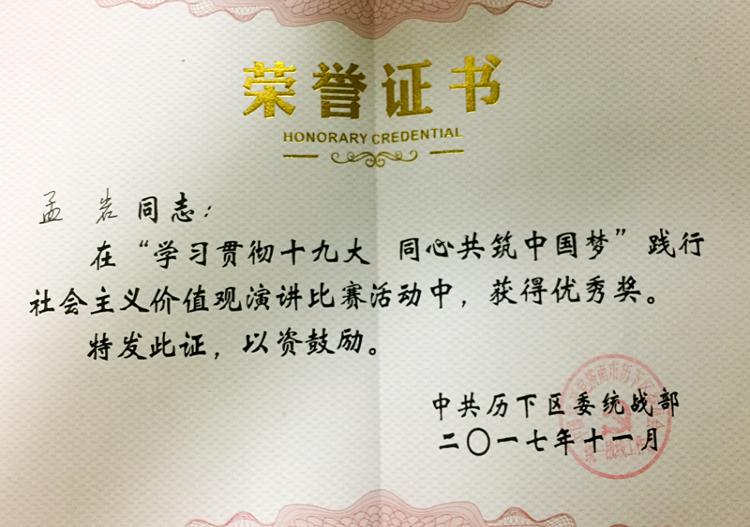 荣誉证书
HONORARY CREDENTIAL
孟 岩 同志：
在“学习贯彻十九大 同心共筑中国梦”践行
社会主义价值观演讲比赛活动中，获得优秀奖。
特发此证，以资鼓励。
中共历下区委统战部
二〇一七年十一月